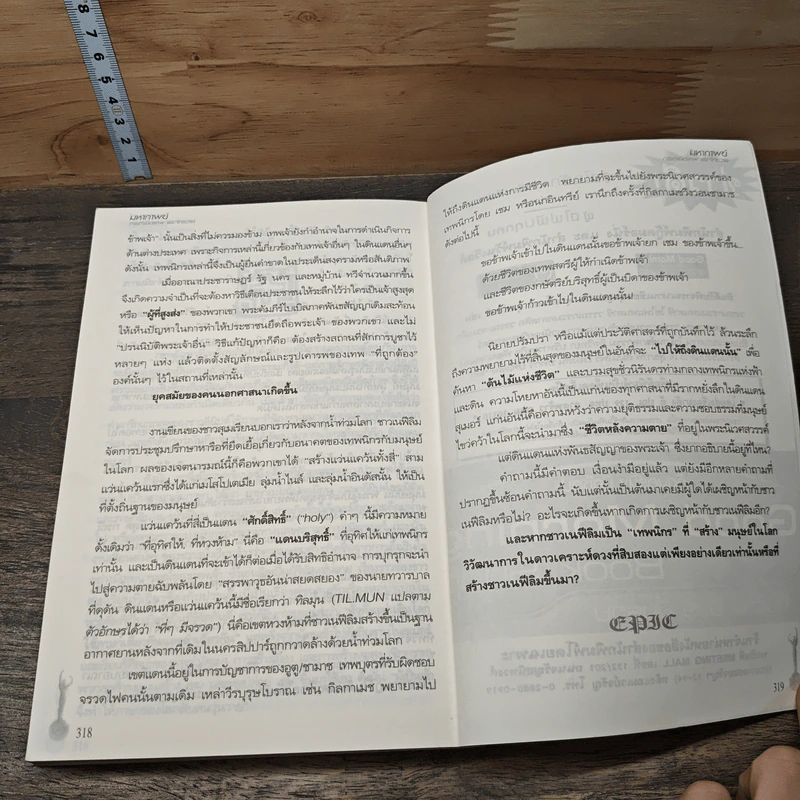 8
7
6
5
4
3
2
1
มหาเทพย์
ข้าพเจ้า นั่นเป็นสิ่งที่ไม่ควรมองข้าม เทพเจ้ายังกำอำนาจในการดำเนินกิจการ
ด้านต่างประเทศ เพราะกิจการเหล่านี้เกี่ยวข้องกับเทพเจ้าอื่นๆ ในดินแดนอื่นๆ
ดังนั้น เทพนิกรเหล่านี้จึงเป็นผู้ยืนคำขาดในประเด็นสงครามหรือสันติภาพ
เมื่ออาณาประชาราษฎร์ รัฐ นคร และหมู่บ้าน ทวีจำนวนมากขึ้น
จึงเกิดความจำเป็นที่จะต้องหาวิธีเตือนประชาชนให้ระลึกไว้ว่าใครเป็นเจ้าสูงสุด
หรือ "ผู้ที่สูงส่ง" ของพวกเขา พระคัมภีร์ไบเบิลภาคพันธสัญญาเดิมสะท้อน
ให้เห็นปัญหาในการทำให้ประชาชนยึดถือพระเจ้า ของพวกเขา และไม่
"ปรนนิบัติพระเจ้าอื่น" วิธีแก้ปัญหาก็คือ ต้องสร้างสถานที่สักการบูชาไว้
หลายๆ แห่ง แล้วติดตั้งสัญลักษณ์และรูปเคารพของเทพ "ที่ถูกต้อง"
องค์นั้นๆ ไว้ในสถานที่เหล่านั้น
ยุคสมัยของคนนอกศาสนาเกิดขึ้น
งานเขียนของชาวสุเมเรียนบอกเราว่าหลังจากน้ำท่วมโลก ชาวเนฟิลิม
จัดการประชุมปรึกษาหารือที่ยืดเยื้อเกี่ยวกับอนาคตของเทพนิกรกับมนุษย์
ในโลก ผลของเจตนารมณ์นี้ก็คือพวกเขาได้ "สร้างแว่นแคว้นทั้งสี่" สาม
แว่นแคว้นแรกซึ่งได้แก่เมโสโปเตเมีย ลุ่มน้ำไนล์ และลุ่มน้ำอินดัสนั้น ให้เป็น
ที่ตั้งถิ่นฐานของมนุษย์
แว่นแคว้นที่สี่เป็นแดน "ศักดิ์สิทธิ์" ("holy") คำๆ นี้มีความหมาย
ดั้งเดิมว่า "ที่อุทิศให้, ที่หวงห้าม" นี่คือ "แดนบริสุทธิ์" ที่อุทิศให้แก่เทพนิกร
เท่านั้น และเป็นดินแดนที่จะเข้าได้ก็ต่อเมื่อได้รับสิทธิอำนาจ การบุกรุกจะนำ
ไปสู่ความตายฉับพลันโดย "สรรพาวุธอันน่าสยดสยอง" ของนายทวารบาล
ที่ดุดัน ดินแดนหรือแว่นแคว้นนี้มีชื่อเรียกว่า ทิลมุน (TIL.MUN แปลตาม
ตัวอักษรได้ว่า "ที่ๆ มีจรวด") นี่คือเขตหวงห้ามที่ชาวเนฟิลิมสร้างขึ้นเป็นฐาน
อากาศยานหลังจากที่เดิมในนครสิปปาร์ถูกกวาดล้างด้วยน้ำท่วมโลก
เขตแดนนี้อยู่ในการบัญชาการของอูตู/ชามาช เทพบุตรที่รับผิดชอบ
จรวดไฟคนนั้นตามเดิม เหล่าวีรบุรุษโบราณ เช่น กิลกาเมช พยายามไป
318
มหาเทพย์
ให้ถึงดินแดนแห่งการมีชีวิต พยายามที่จะขึ้นไปยังพระนิเวศสวรรค์ของ
เทพนิกรโดย เชม หรือนกอินทรีย์ เรานึกถึงครั้งที่กิลกาเมชวิงวอนชามาช
ดังต่อไปนี้
ขอข้าพเจ้าเข้าไปในดินแดนนั้นขอข้าพเจ้ายก เชม ของข้าพเจ้าขึ้น...
ด้วยชีวิตของเทพสตรีผู้ให้กำเนิดข้าพเจ้า
และชีวิตของกษัตริย์บริสุทธิ์ผู้เป็นบิดาของข้าพเจ้า
ขอข้าพเจ้าก้าวเข้าไปในดินแดนนั้น!
นิยายปรัมปรา หรือแม้แต่ประวัติศาสตร์ที่ถูกบันทึกไว้ ล้วนระลึก
ถึงความพยายามไร้ที่สิ้นสุดของมนุษย์ในอันที่จะ "ไปให้ถึงดินแดนนั้น" เพื่อ
ค้นหา "ต้นไม้แห่งชีวิต" และบรมสุขชั่วนิรันดรท่ามกลางเทพนิกรแห่งฟ้า
และดิน ความโหยหาอันนี้เป็นแก่นของทุกศาสนาที่มีรากหยั่งลึกในดินแดน
สุเมอร์ แก่นอันนี้คือความหวังว่าความยุติธรรมและความชอบธรรมที่มนุษย์
ไขว่คว้าในโลกนี้จะนำมาซึ่ง "ชีวิตหลังความตาย" ที่อยู่ในพระนิเวศสวรรค์
แต่ดินแดนแห่งพันธสัญญาของพระเจ้า ซึ่งยากอธิบายนี้อยู่ที่ไหน?
คำถามนี้มีคำตอบ เงื่อนงำมีอยู่แล้ว แต่ยังมีอีกหลายคำถามที่
ปรากฏขึ้นซ้อนคำถามนี้ นับแต่นั้นเป็นต้นมาเคยมีผู้ใดได้เผชิญหน้ากับชาว
เนฟิลิมหรือไม่? อะไรจะเกิดขึ้นหากเกิดการเผชิญหน้ากับชาวเนฟิลิมอีก?
และหากชาวเนฟิลิมเป็น "เทพนิกร" ที่ "สร้าง" มนุษย์ในโลก
วิวัฒนาการในดาวเคราะห์ดวงที่สิบสองแต่เพียงอย่างเดียวเท่านั้นหรือที่
สร้างชาวเนฟิลิมขึ้นมา?
319